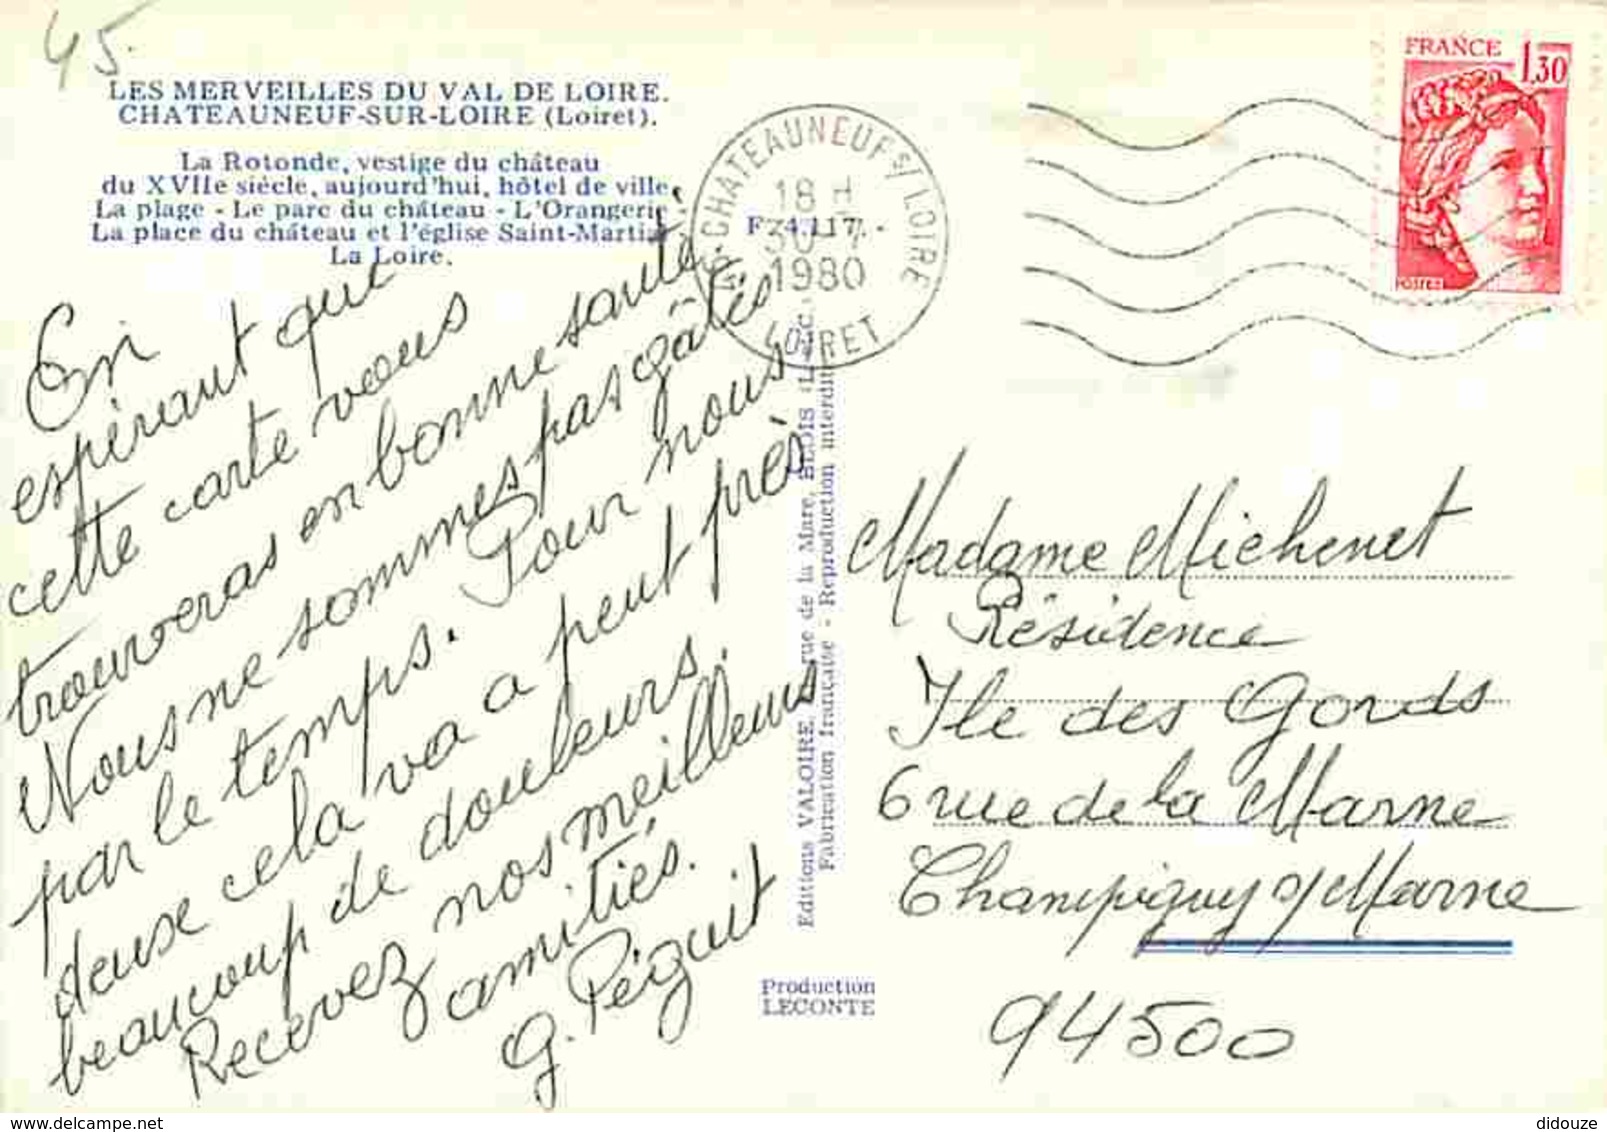 45.
LES MERVEILLES DU VAL DE LOIRE.
CHATEAUNEUF-SUR-LOIRE (Loiret).
La Rotonde, vestige du château
du XVIIe siècle, aujourd'hui, hôtel de ville.
La plage - Le parc du château - L'Orangerie
La place du château et l'église Saint-Martial
La Loire.
En
espérant que
cette carte vous
trouveras en bonne santé.
Nous ne sommes pas gâtés
par le temps. Pour nous
deux cela va a peut près
beaucoup de douleurs.
Recevez nos meilleurs
amitiés.
G. Péguit
CHATEAUNEUF S/ LOIRE
18 H
30-7
1980
LOIRET
F 34.117. -
Editions VALOIRE, rue de la Mare, BLOIS
Fabrication française - Reproduction interdite
Production
LECONTE
FRANCE 1,30
POSTES
Madame Michenet
Résidence
Ile des Gords
6 rue de la Marne
Champigny s/ Marne
94500
delcampe.net
didouze